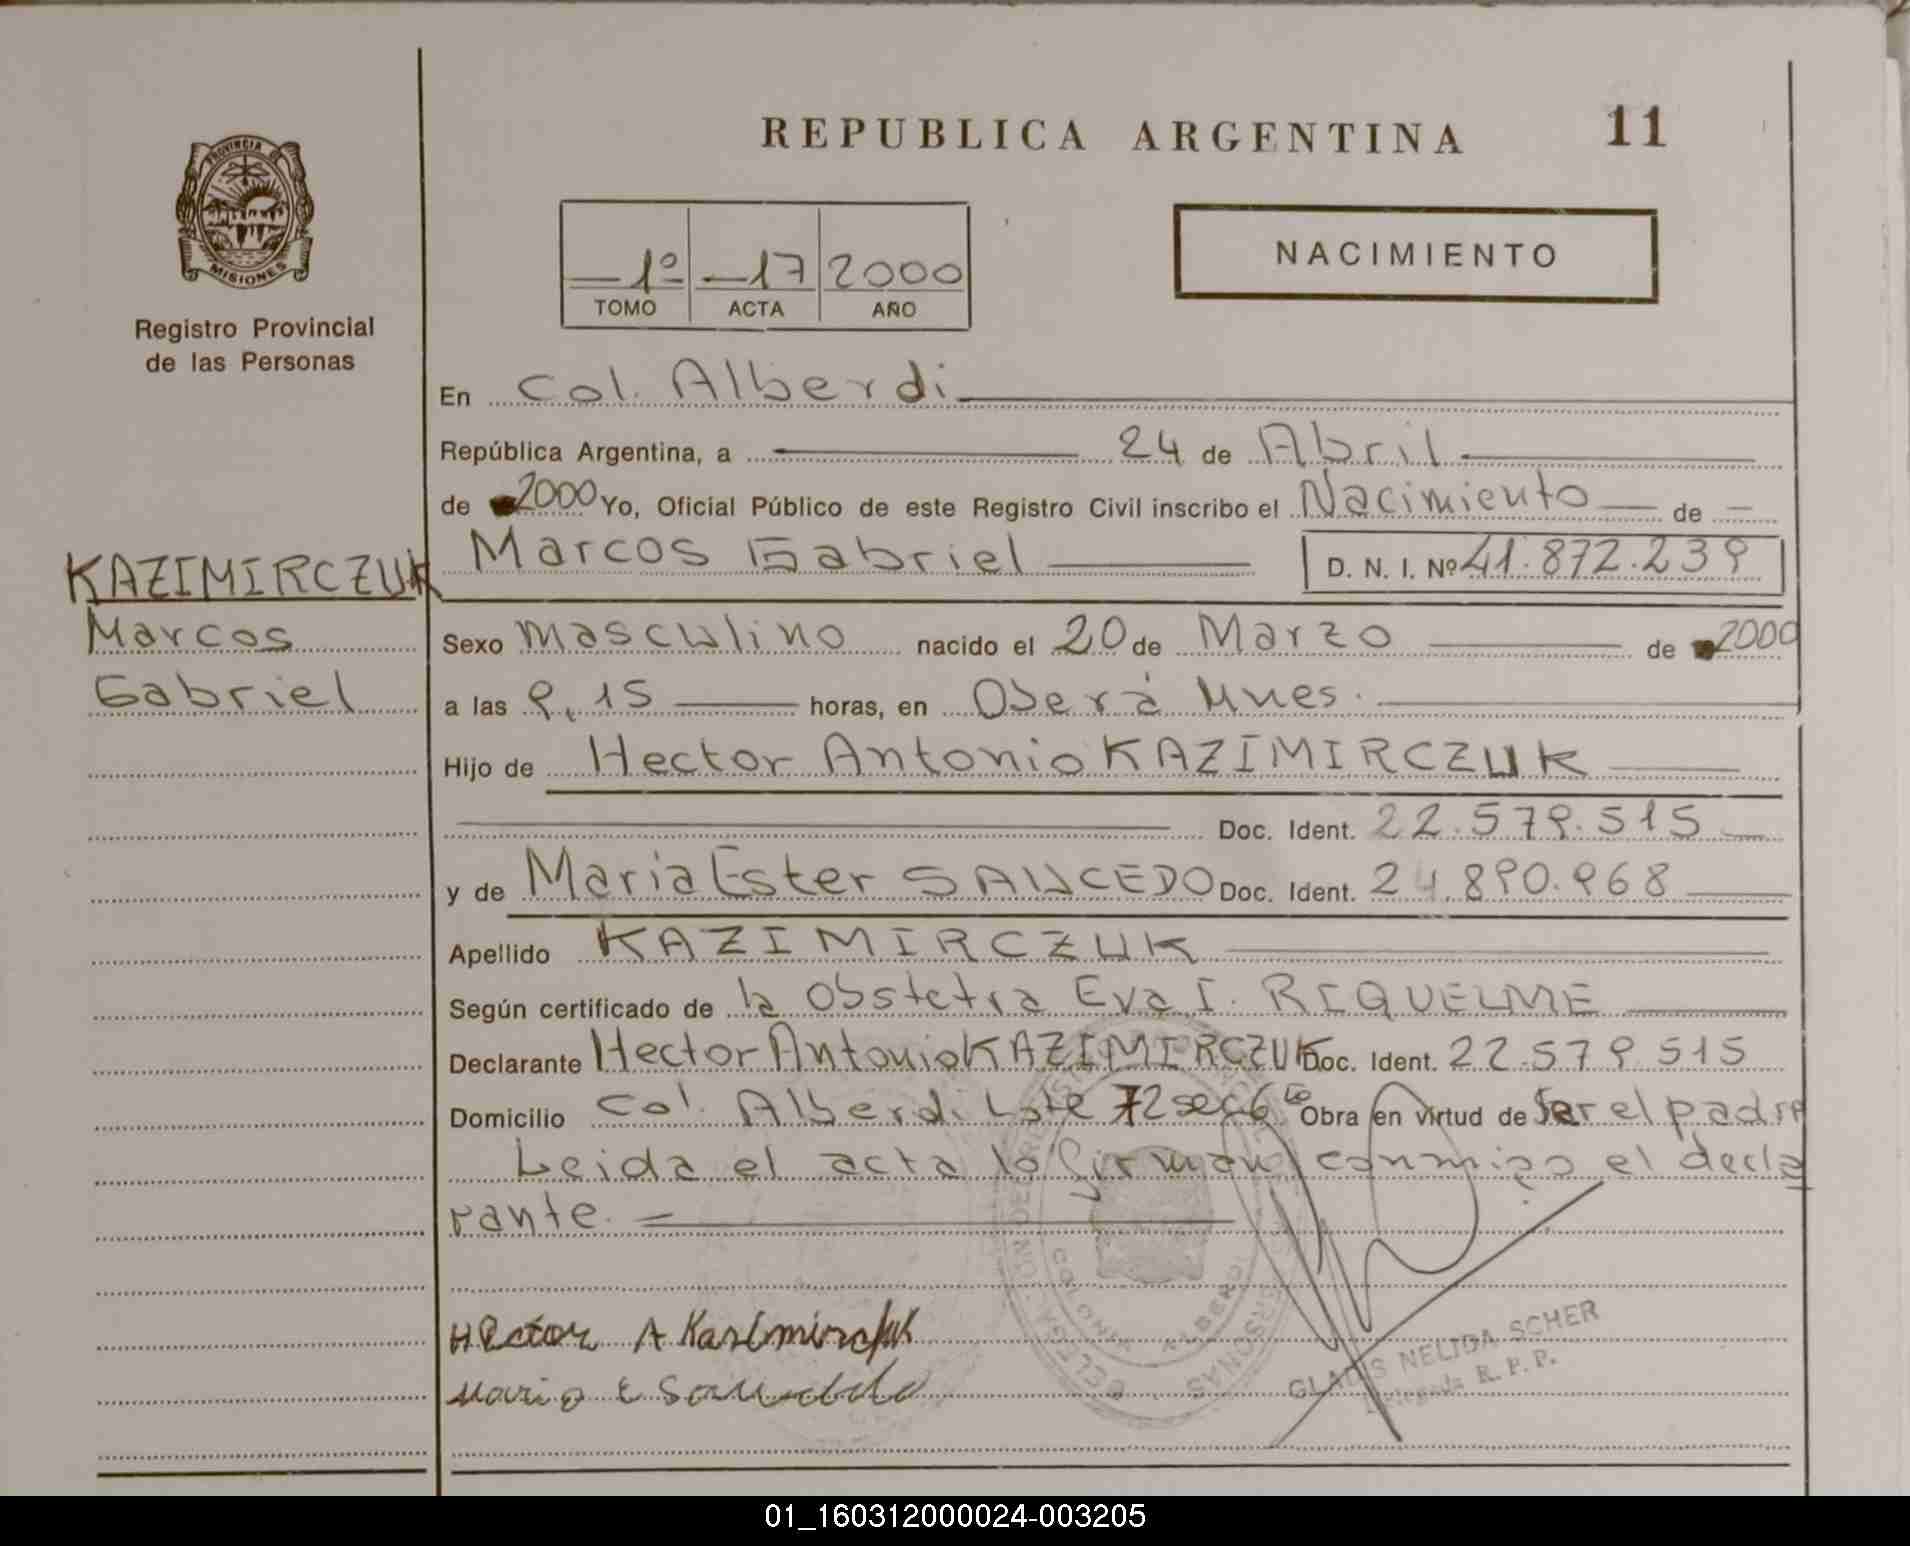 REPUBLICA ARGENTINA
11
PROVINCIA DE
MISIONES
Registro Provincial
de las Personas
1º 17 2000
TOMO ACTA AÑO
NACIMIENTO
En Col. Alberdi
República Argentina, a 24 de Abril
de 2000 Yo, Oficial Público de este Registro Civil inscribo el Nacimiento de
KAZIMIRCZUK
Marcos
Gabriel
Marcos Gabriel D. N. I. Nº 41.872.239
Sexo masculino nacido el 20 de Marzo de 2000
a las 9,15 horas, en Oberá Mnes.
Hijo de Hector Antonio KAZIMIRCZUK
Doc. Ident. 22.579.515
y de Maria Ester SAUCEDO Doc. Ident. 24.890.968
Apellido KAZIMIRCZUK
Según certificado de la Obstetra Eva I. RIQUELME
Declarante Hector Antonio KAZIMIRCZUK Doc. Ident. 22.579.515
Domicilio Col. Alberdi Lote 72 sec 6 Obra en virtud de Ser el padre
Leida el acta lo firman conmigo el decla
rante.
Hector A Kazimirczuk
Maria E Saucedo
COLONIA ALBERDI
GLADIS NELIDA SCHER
Delegada R. P. P.
01_160312000024-003205